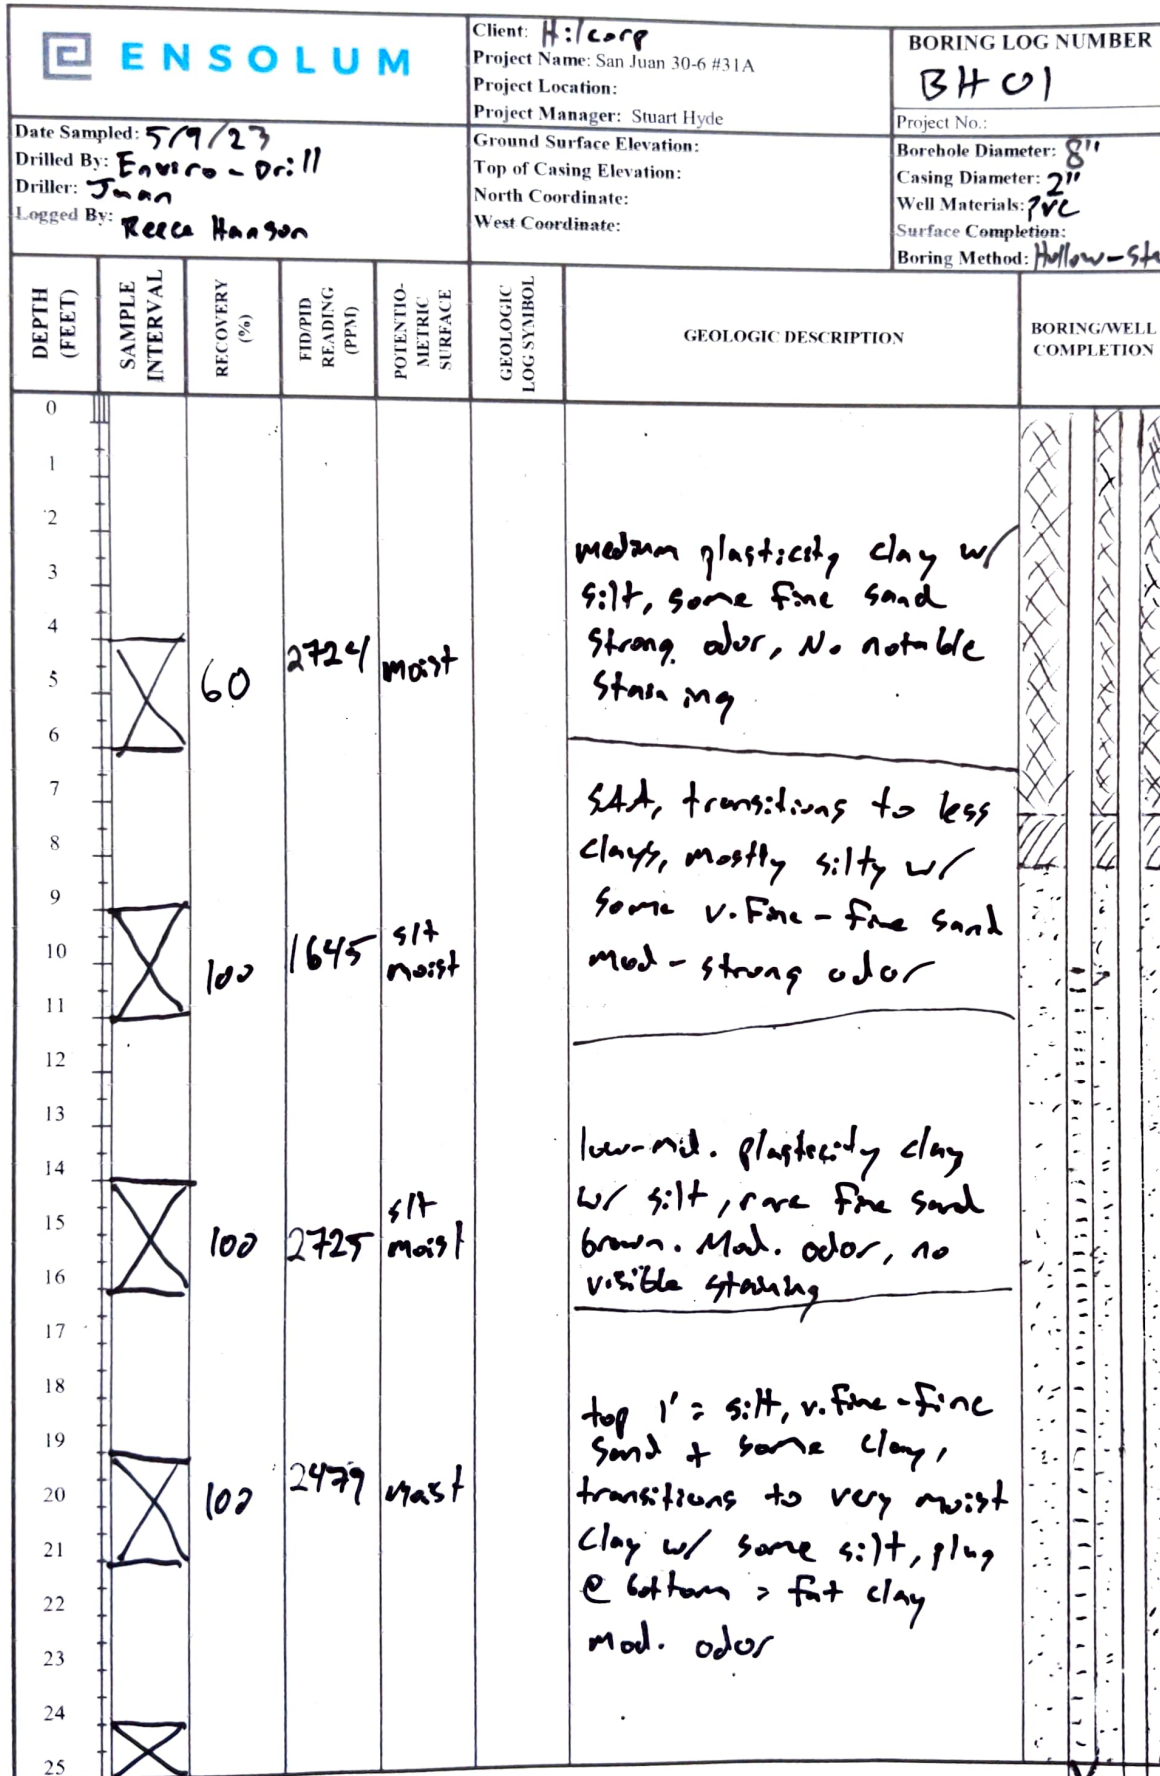 ENSOLUM
Client: Hilcorp
Project Name: San Juan 30-6 #31A
Project Location:
Project Manager: Stuart Hyde
BORING LOG NUMBER
BH01
Project No.:
Date Sampled: 5/9/23
Drilled By: Enviro-Drill
Driller: Juan
Logged By: Reece Hanson
Ground Surface Elevation:
Top of Casing Elevation:
North Coordinate:
West Coordinate:
Borehole Diameter: 8"
Casing Diameter: 2"
Well Materials: PVC
Surface Completion:
Boring Method: Hollow-Ste
DEPTH
(FEET)
SAMPLE
INTERVAL
RECOVERY
(%)
FID/PID
READING
(PPM)
POTENTIO-
METRIC
SURFACE
GEOLOGIC
LOG SYMBOL
GEOLOGIC DESCRIPTION
BORING/WELL
COMPLETION
0
1
2
medium plasticity clay w/
3
silt, some fine sand
4
strong odor, No notable
60 2724 moist
5
staining
6
7
SAA, transitions to less
8
clays, mostly silty w/
9
some v.fine-fine sand
10
100 1645 slt
moist
mod-strong odor
11
12
13
low-mid. plasticity clay
14
w/ silt, rare fine sand
15
100 2725 slt
moist
brown. Mod. odor, no
16
visible staining
17
18
top 1' = silt, v.fine-fine
19
sand + some clay,
20
100 2479 moist
transitions to very moist
21
clay w/ some silt, plug
22
@ bottom = fat clay
23
mod. odor
24
25